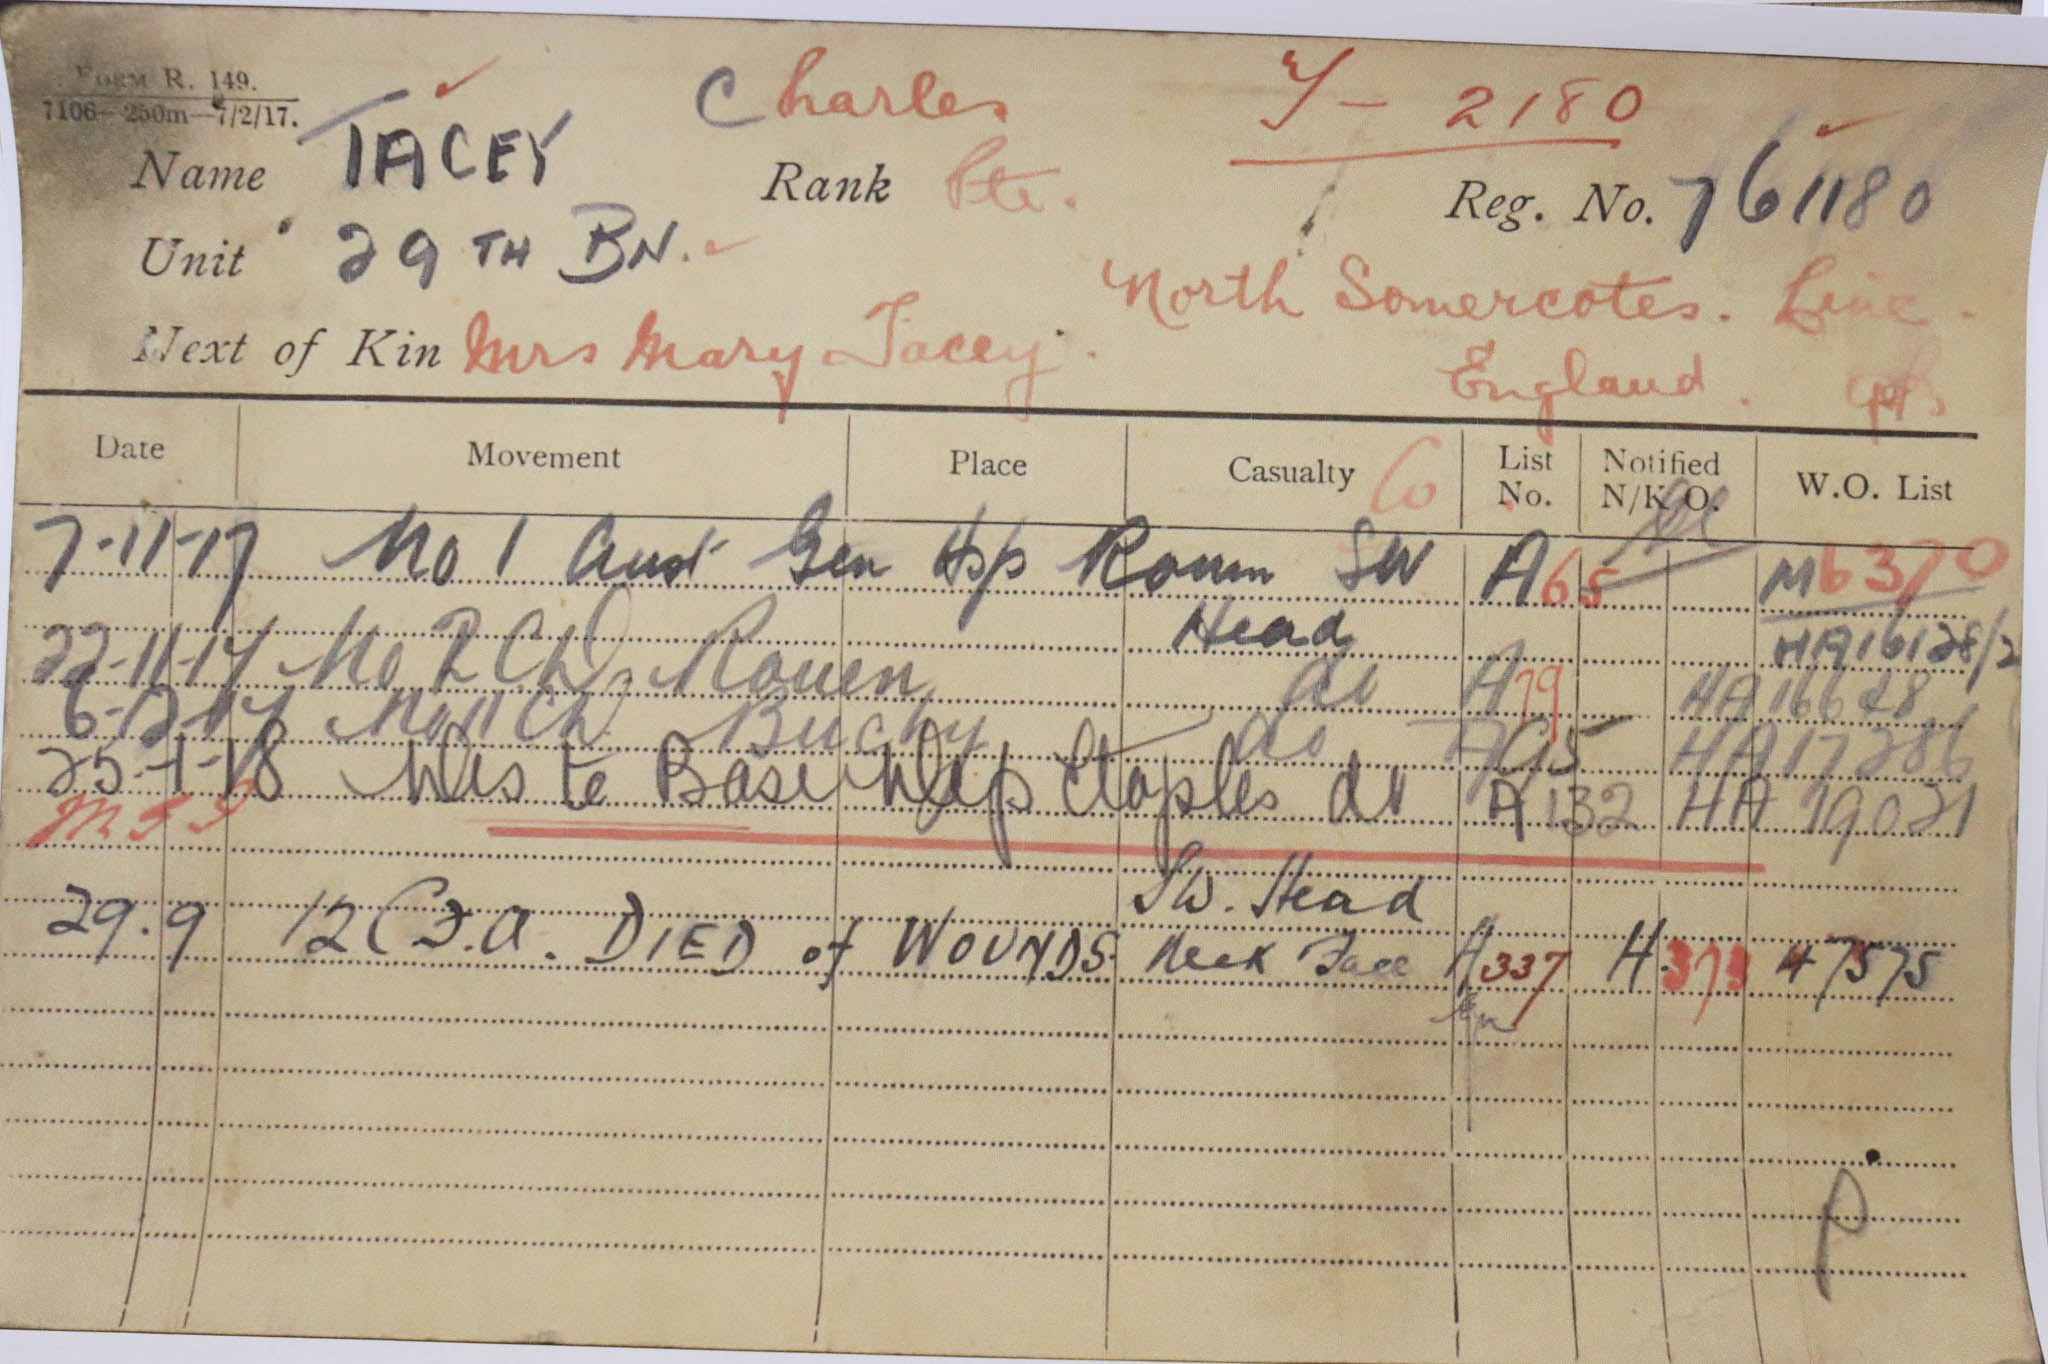 FORM R. 149.
7106—250m—7/2/17.
Charles T - 2180
Name TACEY Rank Pte. Reg. No. 761180
Unit 29TH BN. North Somercotes. Linc.
Next of Kin Mrs Mary Tacey. England.
Date Movement Place Casualty Co List No. Notified N/K O. W.O. List
7-11-17 No 1 Aust Gen Hsp Rouen SW A65 M6370
Head HA16128/2
22-11-17 No 2 CD Rouen do A79 HA16648
6-12-17 No 11 CD Buchy do A95 HA17286
25-1-18 Dis to Base Dep Etaples do A132 HA 19021
SW. Head
29.9 12 C.F.A. DIED of WOUNDS Neck Face A337 H.373 47575
P